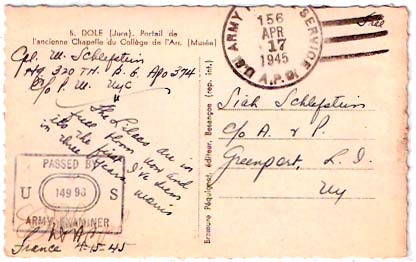 5. DOLE (Jura). Portail de
l'ancienne Chapelle du Collège de l'Arc. (Musée)
Cpl. M. Schlefstein
Hq 320TH. B. G. Apo 374
C/o P. M. NYC
The Lilacs are in
full form now and
it's the first I've seen
in three years
Morris
PASSED BY
U 14998 S
ARMY EXAMINER
France 4-15-45
Brumeire Péquignot, éditeur, Besançon (rep. int.)
U.S. ARMY SERVICE
156
APR
17
1945
A.P.O.
Free
Siah Schlefstein
C/o A. & P.
Greenport, L. I.
NY